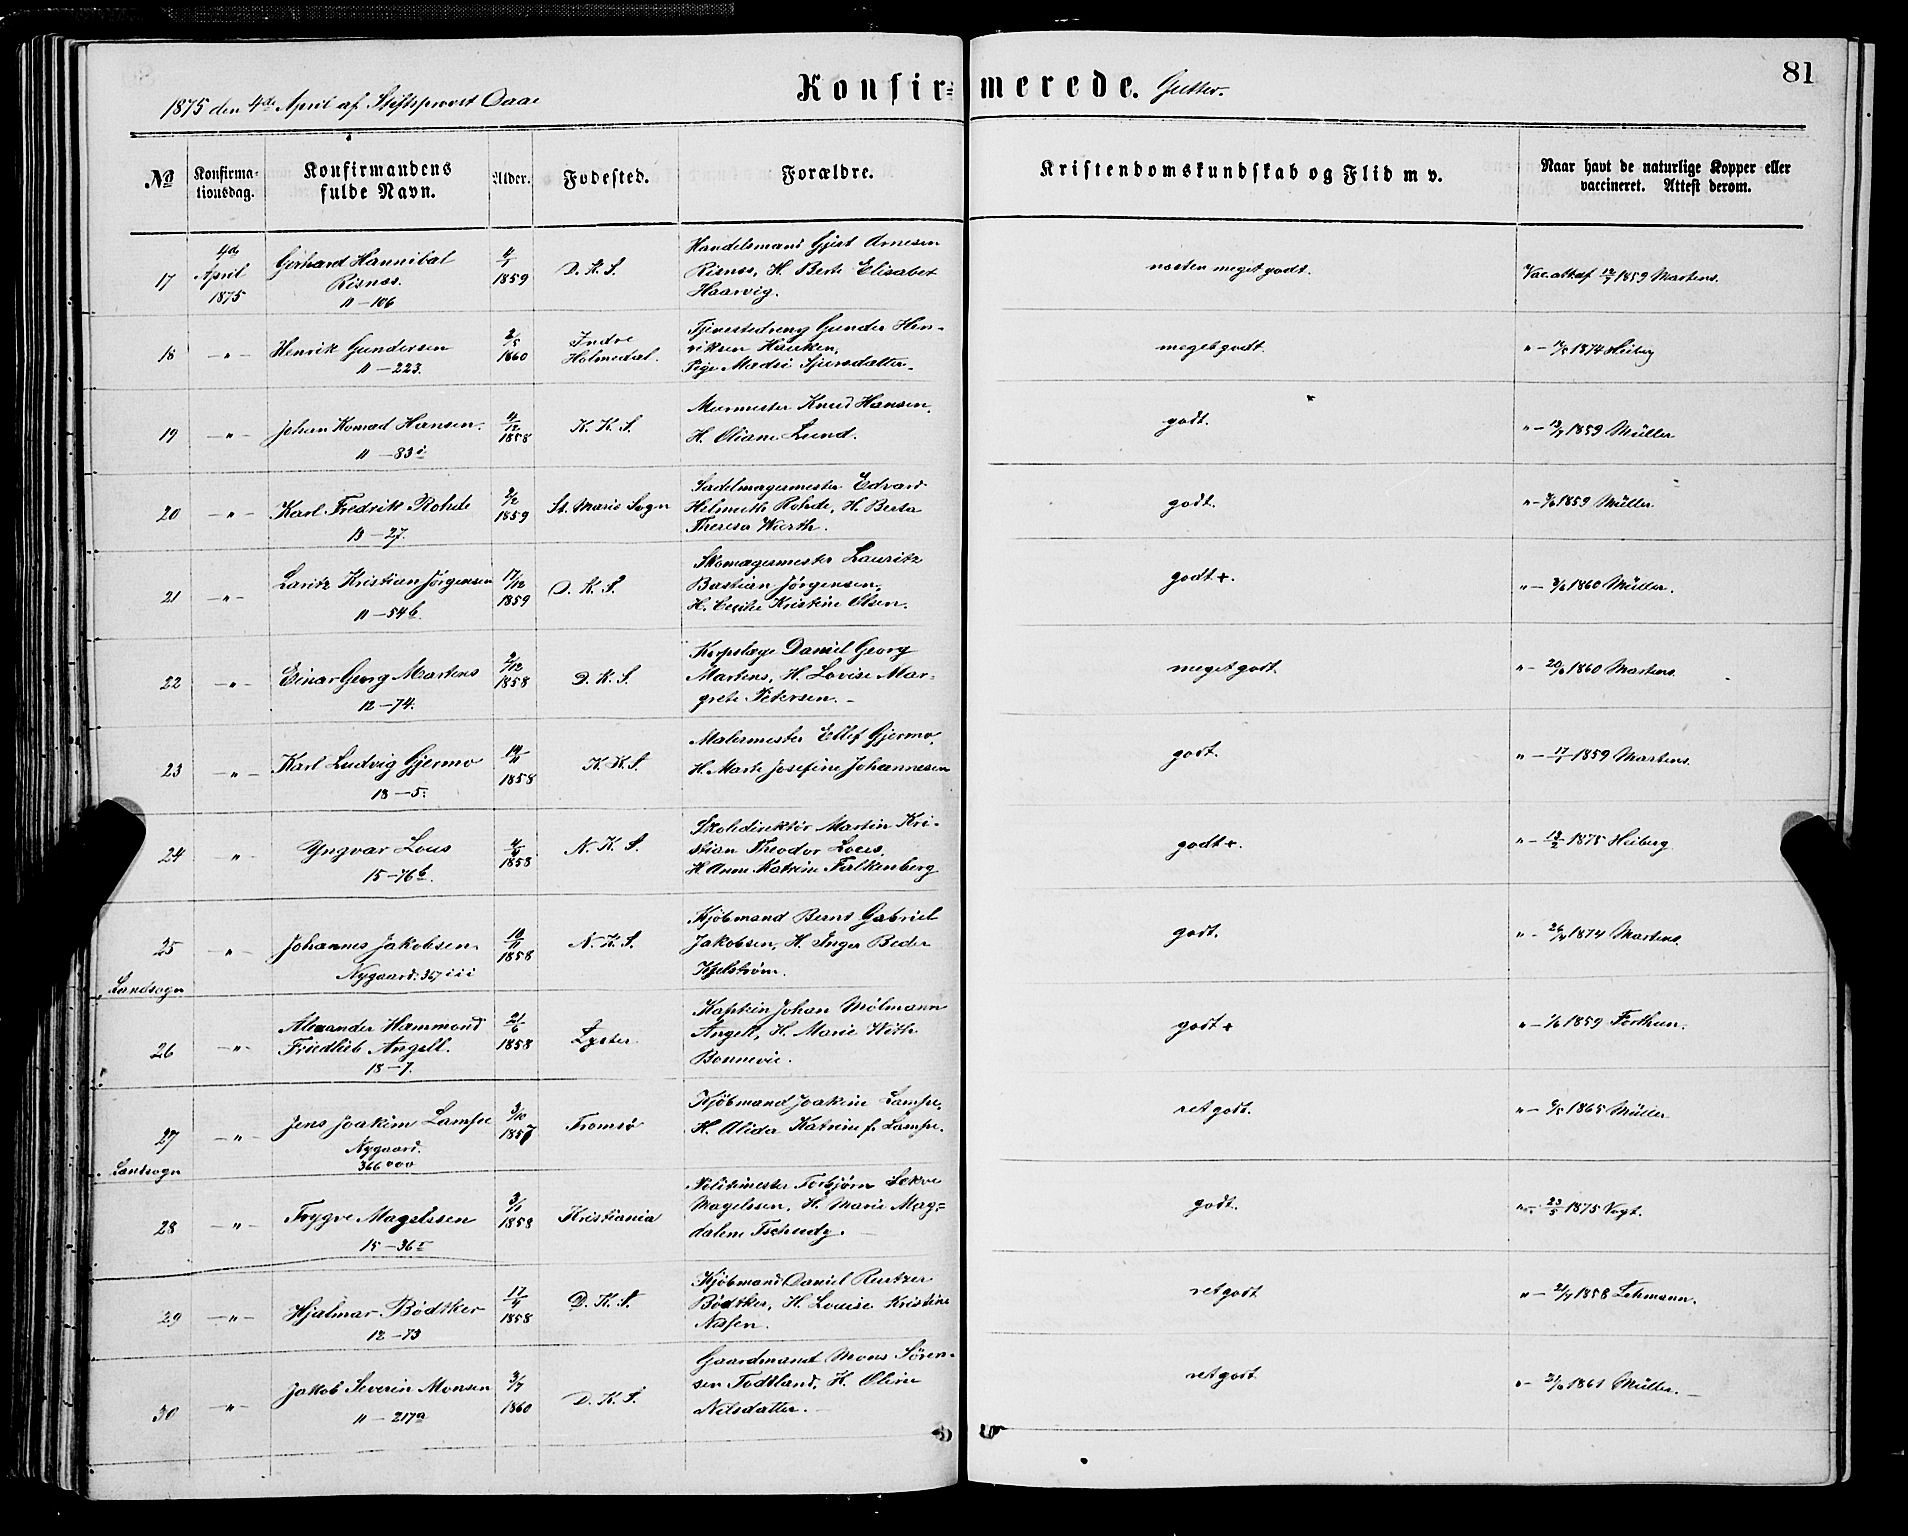 81
1875 den 4de April af Stiftsprovst Daae
Konfirmerede. Gutter.
№ | Konfirma-tionsdag. | Konfirmandens fulde Navn. | Alder. | Fødested. | Forældre. | Kristendomskundskab og Flid m v. | Naar havt de naturlige Kopper eller vaccineret. Attest derom.
17 | 4de April 1875 | Gerhard Hannibal Risnæs. 11-106 | 1859 | D. K. S. | Handelsmand Gjert Arnesen Risnæs, H. Berte Elisabet Haarvig. | næsten meget godt. | Vac.att. af 1859 Martens.
18 | -"- | Henrik Gundersen 11-223. | 1860 | Indre Holmedal. | Tjenestedreng Gunder Henriksen Pige Madsi Sjursdatter. | meget godt. | "- 1874 Heiberg
19 | -"- | Johan Konrad Hansen. 11-83i | 4/12 1858 | K. K. S. | Murmester Knud Hansen, H. Oliane Lund. | godt. | "- 1859 Müller
20 | -"- | Karl Fredrik Rohde 13-27. | 2/2 1859 | St. Marie Sogn | Sadelmagermester Edvard Helmuth Rohde, H. Berta Theresa | godt. | "- 1859 Müller
21 | -"- | Laritz Kristian Jørgensen 11-54b. | 17/12 1859 | D. K. S. | Skomagermester Lauritz Bastian Jørgensen, H. Cecilie Kristine Olsen. | godt +. | "- 1860 Müller.
22 | -"- | Einar Georg Martens 12-74. | 2/12 1858 | D. K. S. | Korpslæge Daniel Georg Martens, H. Lovise Margrete Petersen. | meget godt. | "- 1860 Martens.
23 | -"- | Karl Ludvig Gjermo 18-5. | 1858 | K. K. S. | Malermester Ellef Gjermo, H. Marte Josefine Johannesen | godt. | "- 1859 Martens.
24 | " | Yngvar Lous 15-76b. | 1858 | N. K. S. | Skoledirektør Martin Kristian Theodor Lous, H. Anne Katrine Falkenberg | godt +. | "- 13/2 1875 Heiberg
25 Landsogn | -"- | Johannes Jakobsen. Nygaard. 367iii | 1858 | N. K. S. | Kjøbmand Bernt Gabriel Jakobsen, H. Inger Beder Kjelstrøm. | godt. | "- 1874 Martens.
26 | -"- | Alexander Hammond Friedlieb Angell. 18-7. | 21/6 1858 | Lyster | Kaptein Johan Mølmann Angell, H. Marie With Bonnevie. | godt + | "- 1859 Forthun.
27 Landsogn | -"- | Jens Joakim Lampe Nygaard. 366ooo | 3/10 1857 | Tromsø | Kjøbmand Joakim Lampe, H. Alida Katrine f. Lampe. | ret godt. | "- 1865 Müller
28 | -"- | Trygve Magelssen 15-36 | 1858 | Kristiania | Politimester Torbjørn Lekve Magelssen, H. Marie Magdalene Tschudy. | godt. | "- 23/5 1875 Vogt.
29 | -"- | Hjalmar Bødtker 12-73 | 17/4 1858 | D. K. S. | Kjøbmand Daniel Rentzer Bødtker, H. Louise Kristine | ret godt | "- 1858 Lehmann.
30 | -"- | Jakob Severin Monsen 11-217a | 3/7 1860 | D. K. S. | Gaardmand Mons Sørensen Todtland, H. Oline Nilsdatter. | ret godt. | "- 1861 Müller.